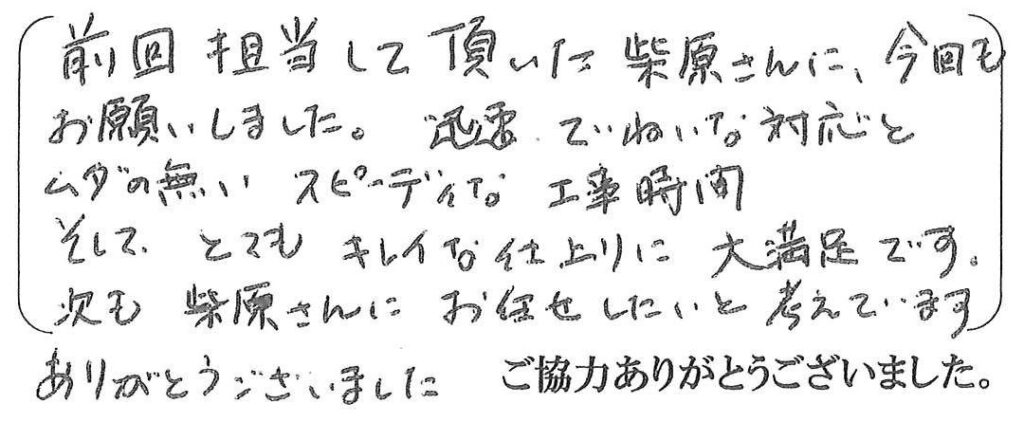 前回 担当して頂いた柴原さんに、今回も
お願いしました。 迅速、ていねいな対応と
ムダの無い スピーディな 工事時間
そして、とても キレイな仕上りに 大満足です。
次も 柴原さんに お任せしたいと考えています
ありがとうございました ご協力ありがとうございました。